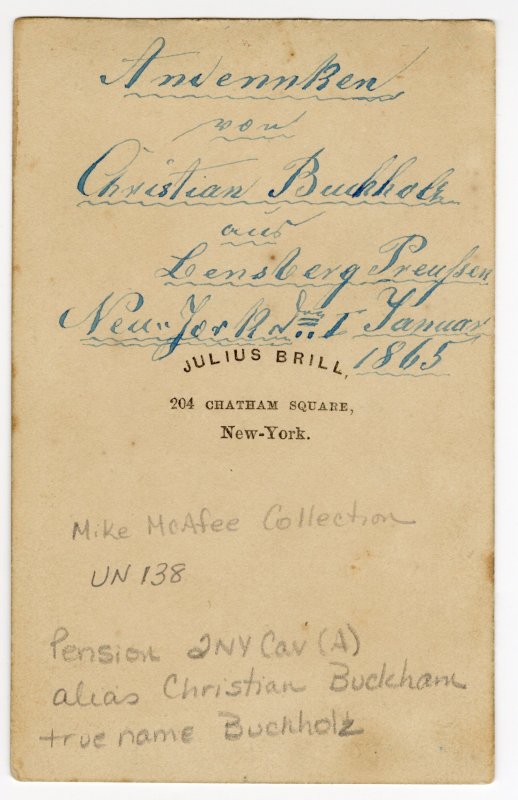 Andennken
von
Christian Buckholz
aus
Lensberg Preußen
New-York d. 1 Januar
1865
JULIUS BRILL,
204 CHATHAM SQUARE,
New-York.
Mike McAfee Collection
UN 138
Pension 2NY Cav (A)
alias Christian Buckham
true name Buckholz